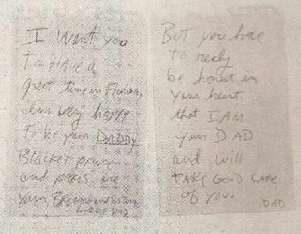 I want you
To have a
great time in Florida
I am very happy
to be your Daddy
Blacket
and
your
But you have
to really
be honest in
your heart
that I AM
your DAD
and will
TAKE GOOD CARE
of you.
DAD